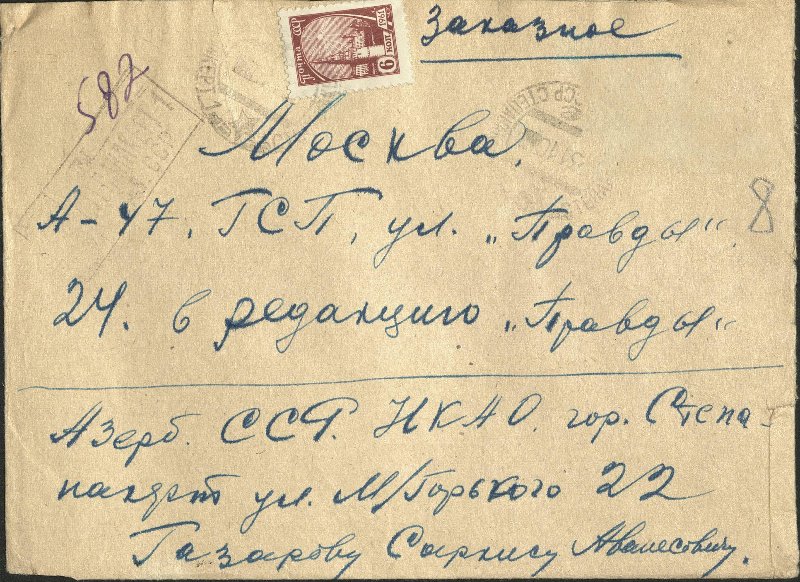 Заказное
582
Почта СССР
1961
6 коп
Москва,
А-47, ГСП, ул. „Правды“
24. в редакцию „Правды“
8
Азерб. ССР. НКАО. гор. Степа-
накерт ул. М/Горького 22
Газарову Саркису Аванесовичу.